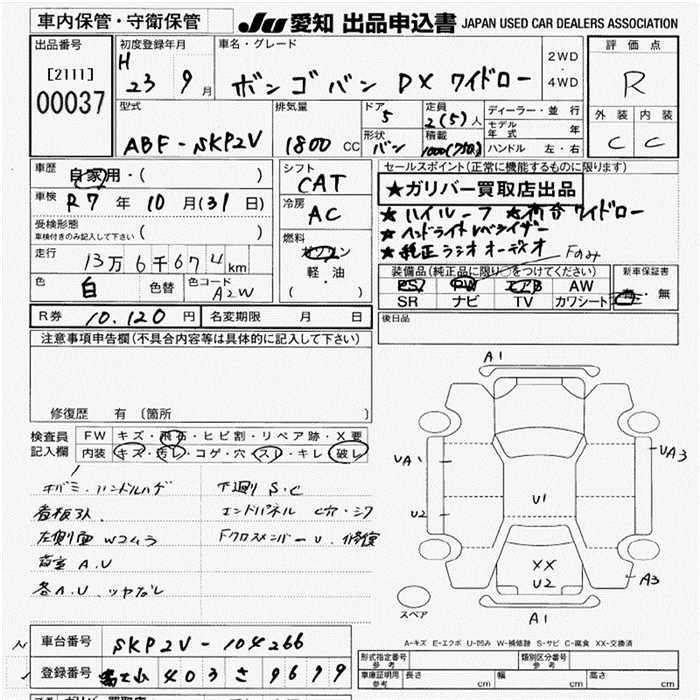 車内保管・守衛保管
JU 愛知 出品申込書 JAPAN USED CAR DEALERS ASSOCIATION
出品番号
[2111]
00037
初度登録年月
H 23 9 月
車名・グレード
ボンゴバン DX ワイドロー
2WD
・
4WD
評価点
R
外装 内装
C C
型式
ABF-SKP2V
排気量
1800 CC
ドア
5
形状
バン
定員
2(5)人
積載
1000(750)
ディーラー・並行
モデル年式 年
ハンドル 左・右
車歴
自家用・( )
車検
R7 年 10 月 (31 日)
受検形態
車検付きのみ記入して下さい ( )
走行
13万6千674km
色
白
色替
色コード
A2W
シフト
CAT
冷房
AC
燃料
ガソリン
軽・油
( ・ )
セールスポイント(正常に機能するものに限ります)
★ガリバー買取店出品
★ハイルーフ ★荷台ワイドロー
★ヘッドライトレベライザー
★純正ラジオオーディオ
Fのみ
装備品(純正品に限り○をつけてください)
PS PW エアB AW
SR ナビ TV カワシート
新車保証書
有・無
R券 10,120 円
名変期限 月 日
後日品
注意事項申告欄(不具合内容等は具体的に記入して下さい)
修復歴 有 〔箇所 〕
検査員
記入欄
FW キズ・飛石・ヒビ割・リペア跡・X要
内装 キズ・汚レ・コゲ・穴・スレ・キレ・破レ
ハンドルハゲ 下廻りS.C
看板跡 エンドパネル C穴
左側面Wコムラ Fクロスメンバー U 修復
荷室 A.U
各A.U ツヤなし
A1
UA1
UA3
U2
U1
XX
U2
A3
A1
スペア
A-キズ E-エクボ U-凹み W-補修跡 S-サビ C-腐食 XX-交換済
車台番号
SKP2V-104266
登録番号
403 さ 9679
形式指定番号
参考
類別区分番号
参考
車庫証明用
参考
長さ cm 幅 cm 高さ cm
ガリバー買取店